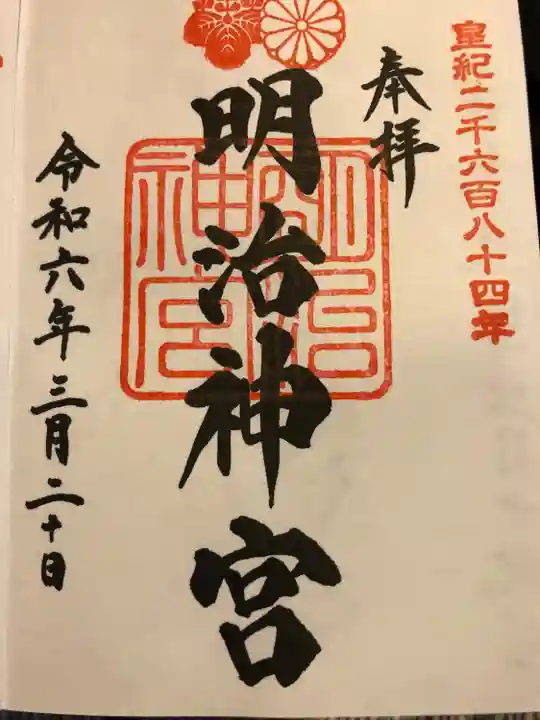 皇紀二千六百八十四年
奉拝
明治神宮
明治神宮
令和六年三月二十日